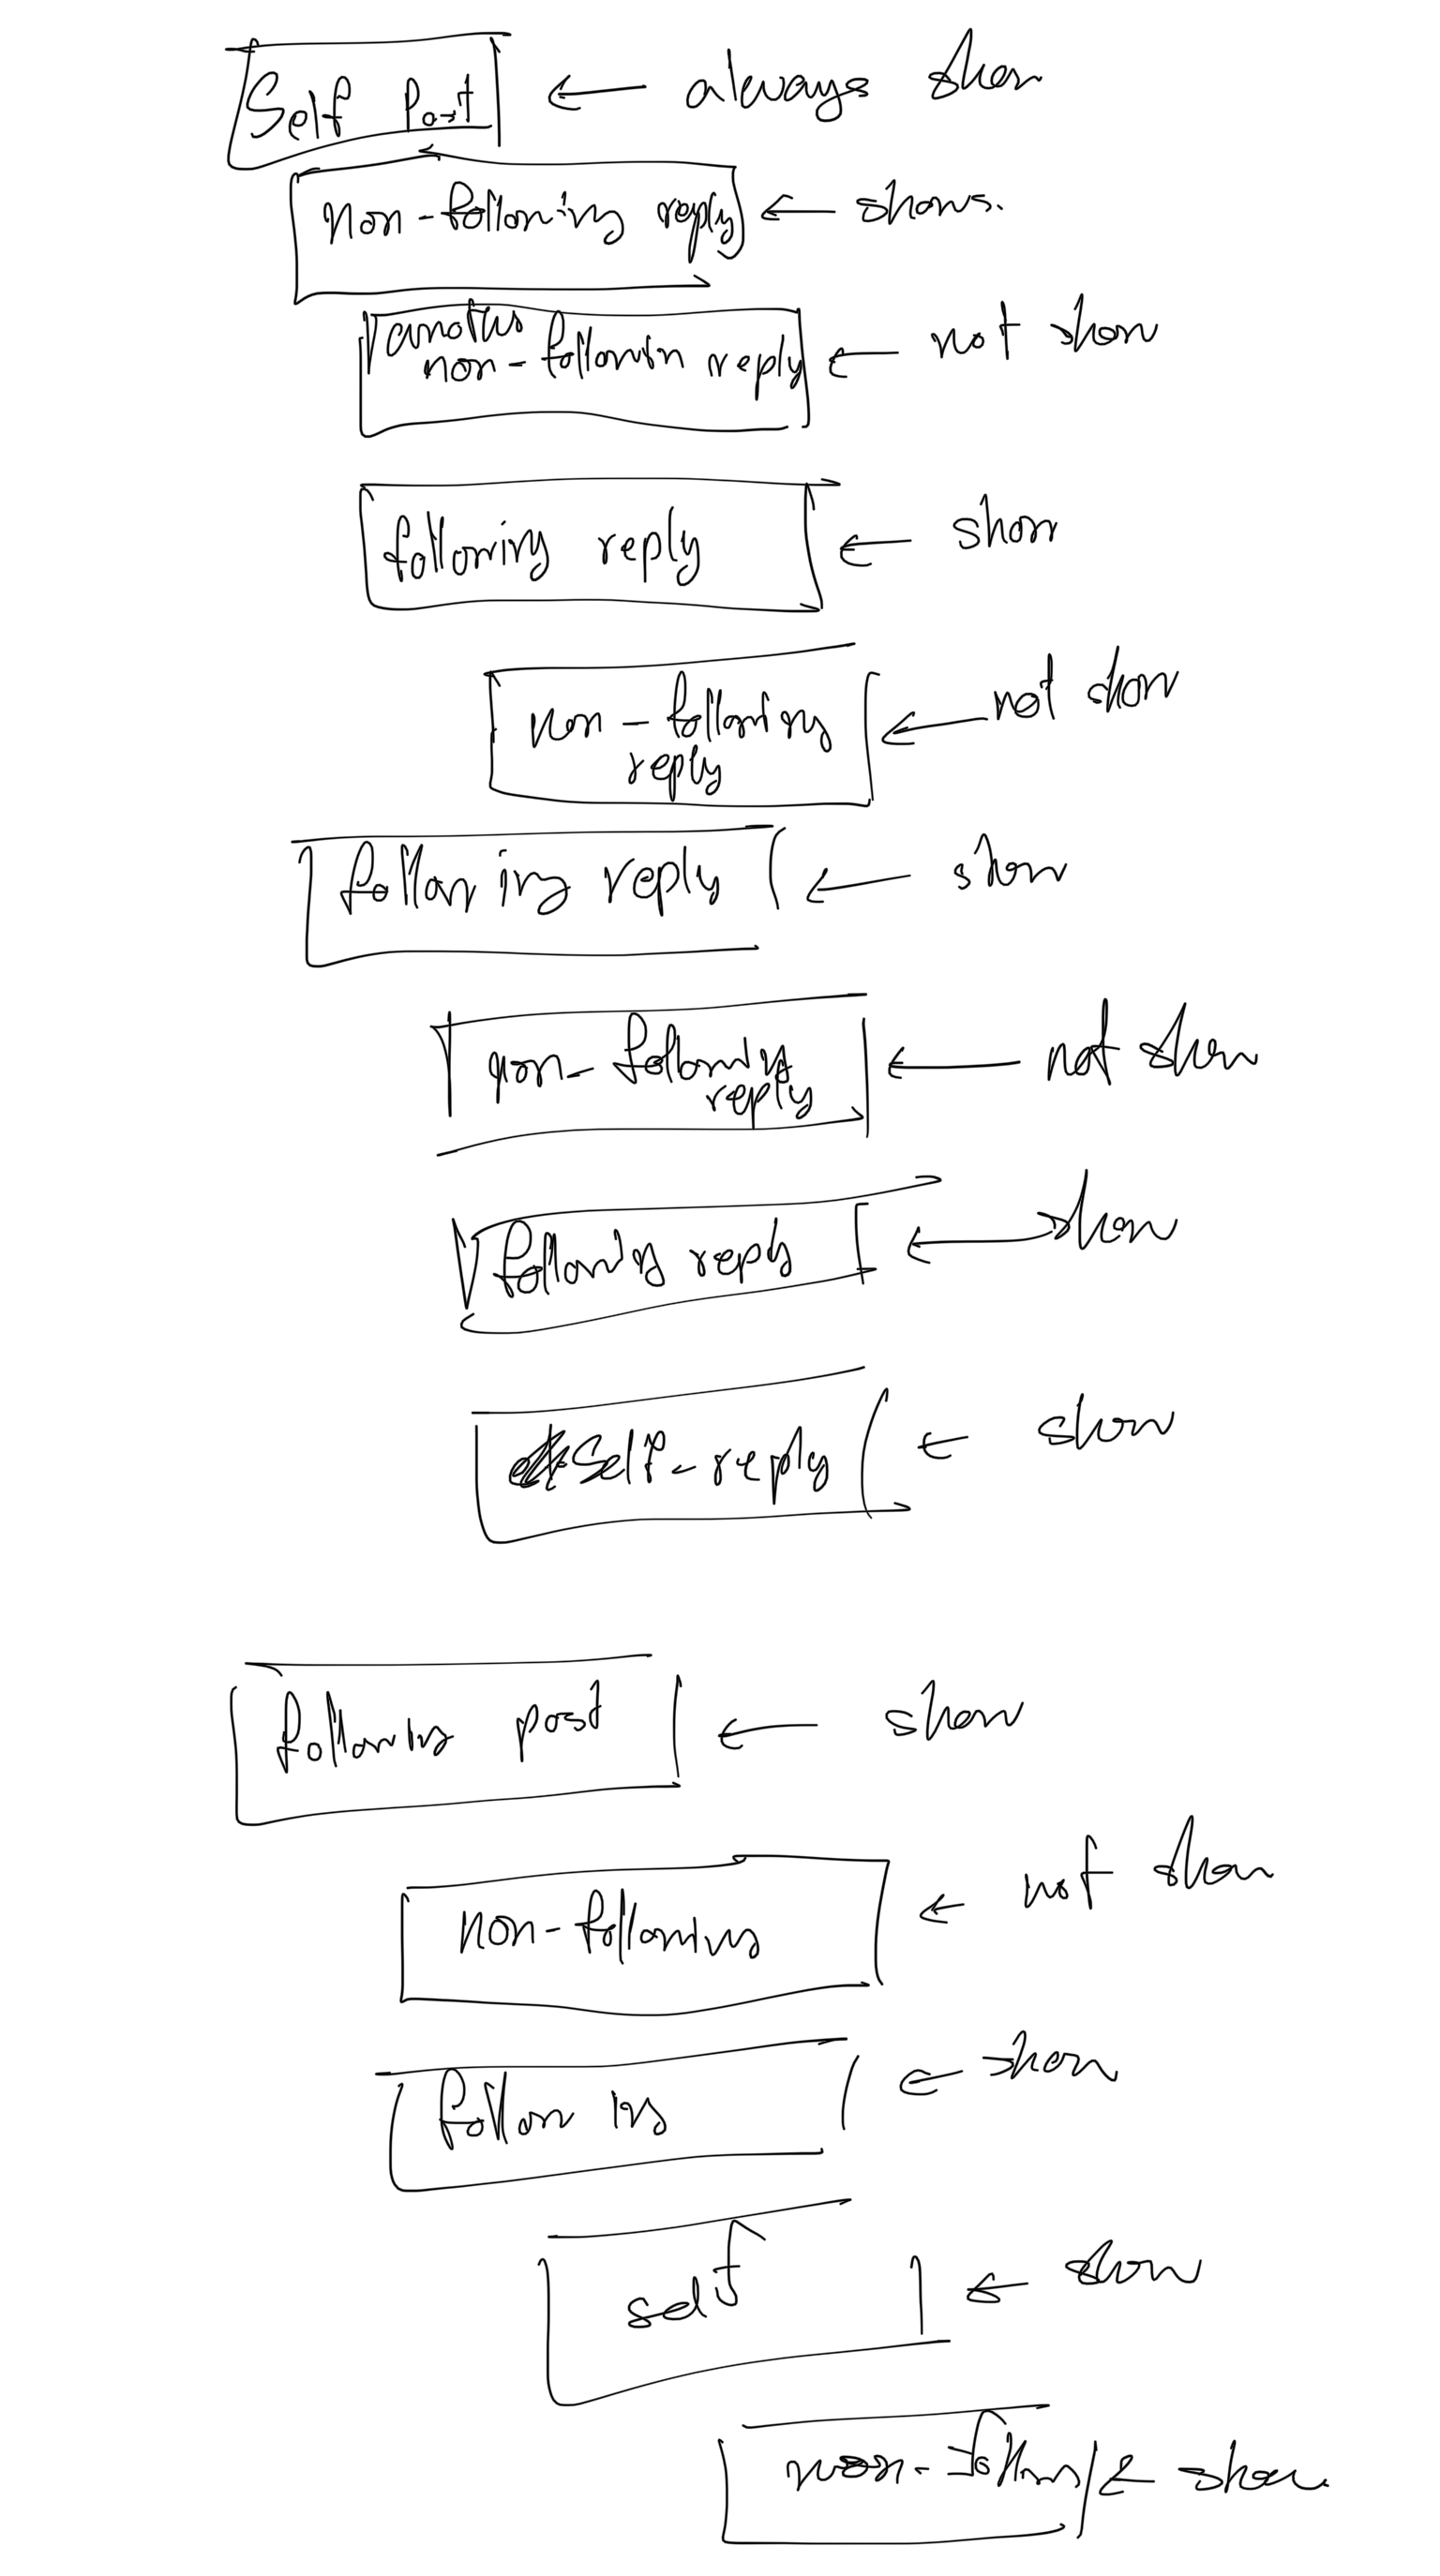 Self Post ← always show
Non-following reply ← shows.
another
non-following reply ← not show
following reply ← show
non-following ← not show
reply
following reply ← show
non-following ← not show
reply
following reply ← show
self-reply ← show
following post ← show
non-following ← not show
following ← show
self ← show
non-following ← show